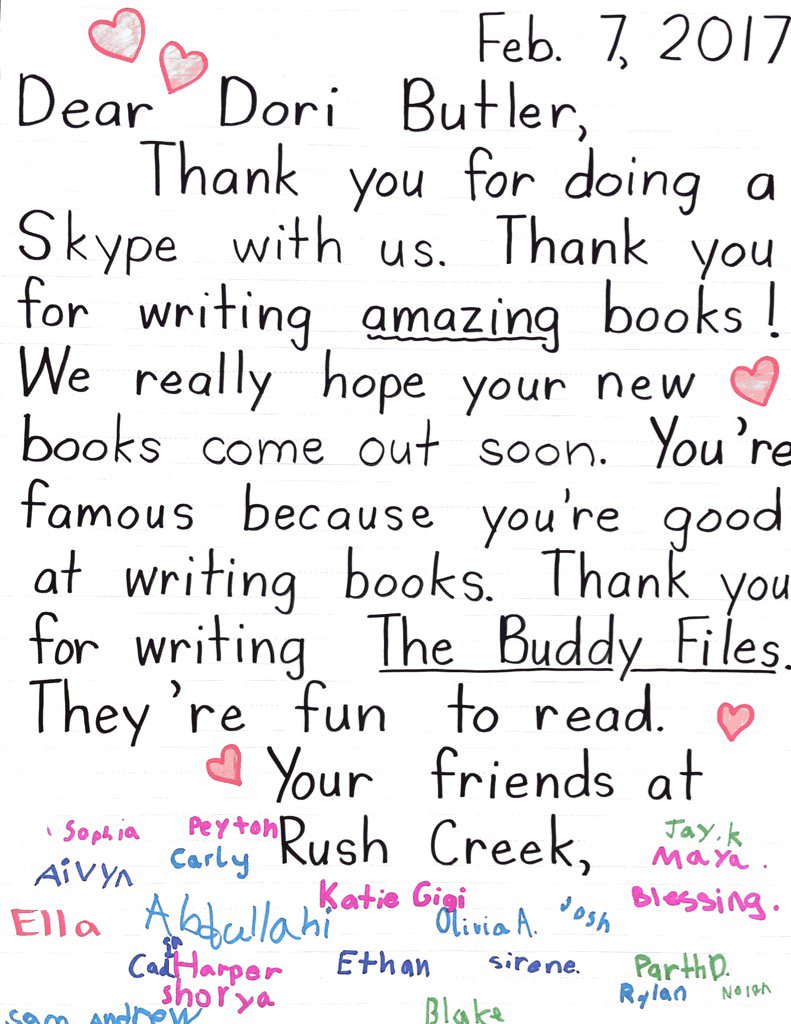 Feb. 7, 2017
Dear Dori Butler,
Thank you for doing a
Skype with us. Thank you
for writing amazing books!
We really hope your new
books come out soon. You're
famous because you're good
at writing books. Thank you
for writing The Buddy Files.
They're fun to read.
Your friends at
Rush Creek,
Sophia Peyton Jay.k
Aivyn Carly Maya.
Katie Gigi Blessing.
Ella Abdullahi Olivia A. Josh
Harper Ethan sirone. Parth D.
shorya Rylan Nolan
Sam Andrew Blake